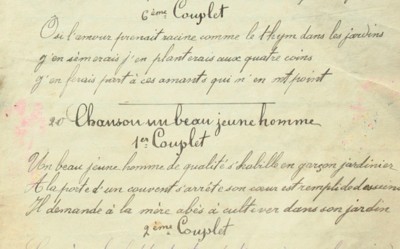 6ème Couplet
Si l'amour prenait racine comme le thym dans les jardins
j'en sèmerais j'en planterais aux quatre coins
j'en ferais part à ces amants qui n'en ont point
20 Chanson un beau jeune homme
1er Couplet
Un beau jeune homme de qualité s'habille en garçon jardinier
A la porte d'un couvent s'arrête son cœur est rempli de
Il demande à la mère abès à cultiver dans son jardin
2ème Couplet